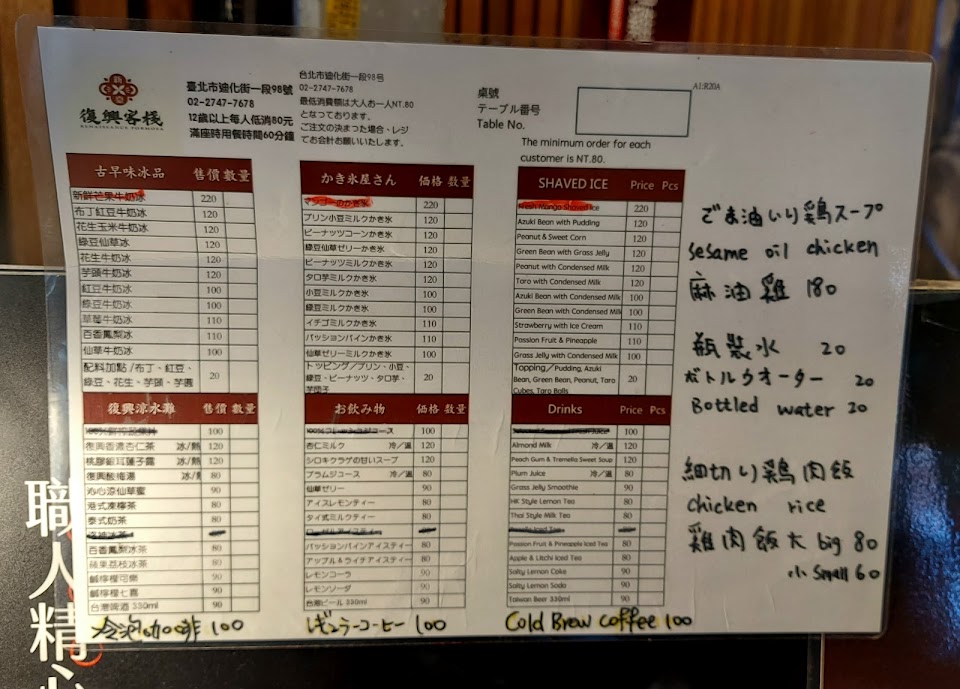 復興客棧
RENAISSANCE FORMOSA
臺北市迪化街一段98號
02-2747-7678
12歲以上每人低消80元
滿座時用餐時間60分鐘
台北市迪化街一段98号
02-2747-7678
最低消費額は大人お一人NT.80
となっております。
ご注文の決まった場合、レジ
てお会計お願いいたします。
桌號
テーブル番号
Table No.
A1:R20A
The minimum order for each
customer is NT.80.
古早味冰品 售價 數量
新鮮芒果牛奶冰 220
布丁紅豆牛奶冰 120
花生玉米牛奶冰 120
綠豆仙草冰 120
花生牛奶冰 120
芋頭牛奶冰 120
紅豆牛奶冰 100
綠豆牛奶冰 100
草莓牛奶冰 110
百香鳳梨冰 110
仙草牛奶冰 100
配料加點/布丁、紅豆、
綠豆、花生、芋頭、芋圓 20
復興涼水灘 售價 數量
100
復興香濃杏仁茶 冰/熱 120
桃膠銀耳蓮子露 冰/熱 120
復興酸梅湯 冰/熱 80
沁心涼仙草蜜 90
港式凍檸茶 80
泰式奶茶 80
百香鳳梨冰茶 80
蘋果荔枝冰茶 80
鹹檸檬可樂 90
鹹檸檬七喜 90
台灣啤酒 330ml 90
冷泡咖啡 100
かき氷屋さん 価格 数量
マンゴーのかき氷 220
プリン小豆ミルクかき氷 120
ピーナッツコーンかき氷 120
緑豆仙草ゼリーかき氷 120
ピーナッツミルクかき氷 120
タロ芋ミルクかき氷 120
小豆ミルクかき氷 100
緑豆ミルクかき氷 100
イチゴミルクかき氷 110
パッションパインかき氷 110
仙草ゼリーミルクかき氷 100
トッピング/プリン、小豆、
緑豆、ピーナッツ、タロ芋、
芋団子 20
お飲み物 価格 数量
100%フレッシュジュース 100
杏仁ミルク 冷/温 120
シロキクラゲの甘いスープ 120
プラムジュース 冷/温 80
仙草ゼリー 90
アイスレモンティー 80
タイ式ミルクティー 80
パッションパインアイスティー 80
アップル&ライチアイスティー 80
レモンコーラ 90
レモンソーダ 90
台湾ビール 330ml 90
レギュラーコーヒー 100
SHAVED ICE Price Pcs
Fresh Mango Shaved Ice 220
Azuki Bean with Pudding 120
Peanut & Sweet Corn 120
Green Bean with Grass Jelly 120
Peanut with Condensed Milk 120
Taro with Condensed Milk 120
Azuki Bean with Condensed Milk 100
Green Bean with Condensed Milk 100
Strawberry with Ice Cream 110
Passion Fruit & Pineapple 110
Grass Jelly with Condensed Milk 100
Topping/Pudding, Azuki
Bean, Green Bean, Peanut, Taro
Cubes, Taro Balls 20
Drinks Price Pcs
100
Almond Milk 冷/温 120
Peach Gum & Tremella Sweet Soup 120
Plum Juice 冷/温 80
Grass Jelly Smoothie 90
HK Style Lemon Tea 80
Thai Style Milk Tea 80
Passion Fruit & Pineapple Iced Tea 80
Apple & Litchi Iced Tea 80
Salty Lemon Coke 90
Salty Lemon Soda 90
Taiwan Beer 330ml 90
Cold Brew coffee 100
ごま油いり鶏スープ
sesame oil chicken
麻油雞 180
瓶裝水 20
ボトルウオーター 20
Bottled water 20
細切り鶏肉飯
chicken rice
雞肉飯大 big 80
小 small 60
職人精心